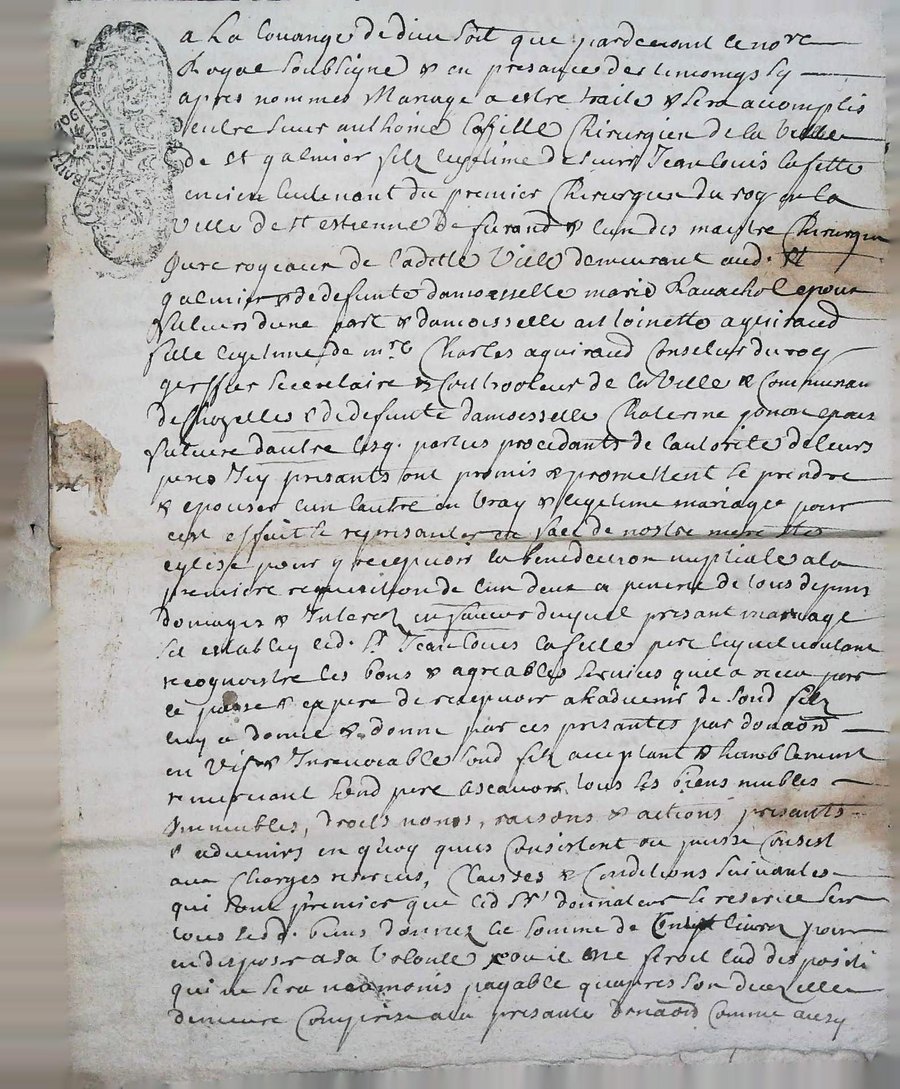 a La Louange de dieu soit que pardevant le no.re
Royal soubsigne & en presance des temoingts cy
apres nommes Mariage a estre traite & sera accomplis
Entre sieur anthoine Lafitte Chirurgien de la Ville
de St galmier filz legitime de sieur Jean Louis Lafitte
encien lieutenant du premier Chirurgien du roy en la
Ville de St estienne de furand & l'un des maistre Chirurgien
Jure royeaux de ladite Ville demeurant aud. St
galmier & de defunte damoiselle marie Ravachol epoux
futeurs d'une part & damoiselle antoinette aguiraud
fille legitime de m.re Charles aguiraud Conselier du roy
greffier secretaire & Controoleur de la Ville & Communau
de & de defunte damoiselle Catherine jonon epouse
future d'autre lesq. parties procedants de l'autorite de leurs
peres Icy presants ont promis & promettent se prendre
& epouser l'un l'autre en vray & legitime mariage pour
cest effait se represanter en face de nostre mere Ste
eglise pour y recepvoir la benediction nuptiale a la
premiere requisition de l'un deux a peine de tous depans
domages & Interez en faveur duquel presant mariage
s'et establey led. Sr Jean Louis Lafitte pere lequel voulant
recognoistre les bons & agreables services quil a receu par
le passe & espere de recepvoir a l'advenir de sond filz
luy a donne & donne par ces presantes par donaon
en vifs & Irrevocable sond filz acceptant & humblement
remerciant sond pere ascavoir tous les biens meubles
Immeubles, droits noms, raisons & actions presants
& advenirs en quoy quils Consistent ou puisse Consist
aux Charges reserves, Clauses & Conditions suivantes
qui sont premier que led Sr donnateur se reserve sur
tous lesd. biens donnez la somme de livres pour
en disposer a sa volonte & ou il ne feroit lad disposition
qui ne sera neamoins payable quapres son decez elle
demeure Comprise a la presante donaon Comme aussy